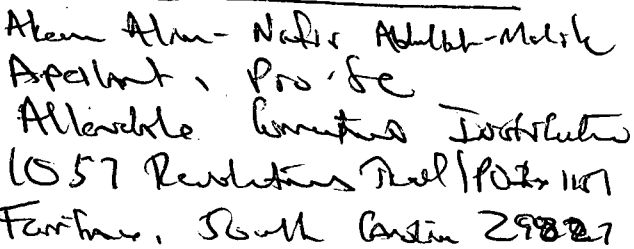 Akeem Alim-Nafis Abdullah-Malik
Appellant, Pro-Se
Allendale Correctional Institution
1057 Revolutionary Trail/PO Box 1151
Fairfax, South Carolina 29827